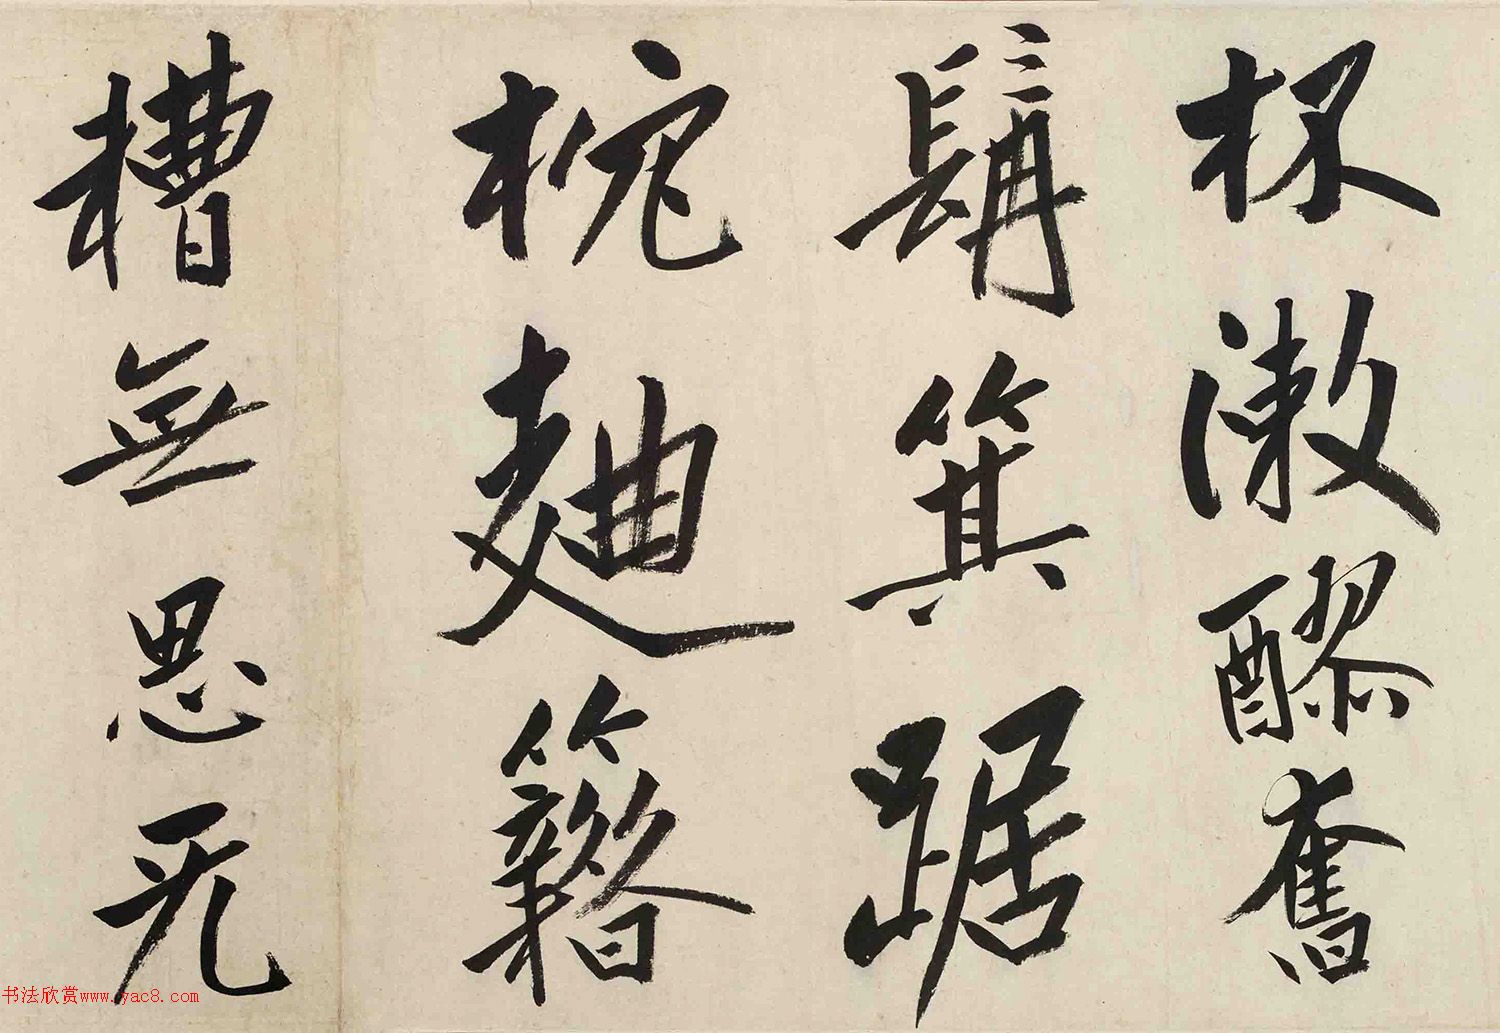 杯漱醪奮
髯箕踞
枕麯籍
糟無思无
书法欣赏www.yac8.com